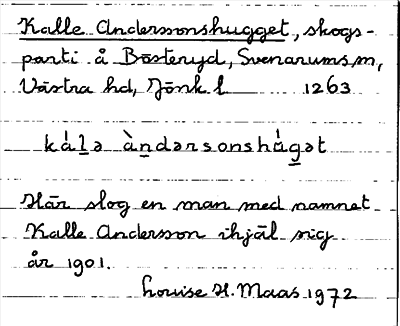 Kalle Anderssonshugget, skogs-
parti å Bästeryd, Svenarums sn,
Västra hd, Jönk l 1263
kálḻə àṉdərsonshág̱ət
Här slog en man med namnet
Kalle Andersson ihjäl sig
år 1901.
Louise H. Maas 1972